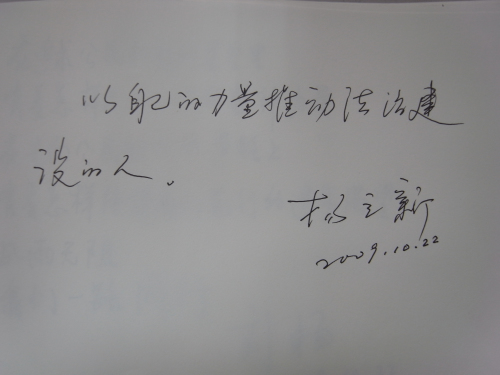 以自己的力量推动法治建
设的人。
杨立新
2009.10.22